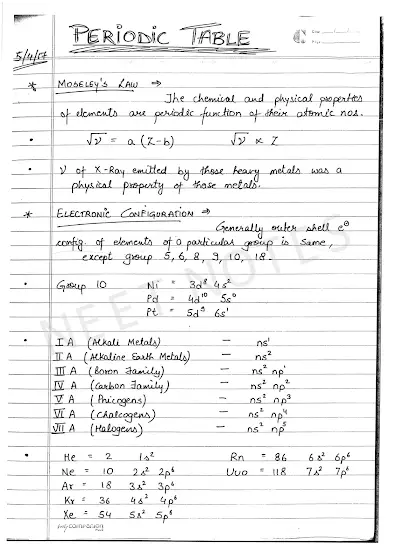 PERIODIC TABLE
5/4/17
* MOSELEY'S LAW ⇒
The chemical and physical properties
of elements are periodic function of their atomic nos.
• √ν = a (Z-b) √ν ∝ Z
• ν of X-Ray emitted by those heavy metals was a
physical property of those metals.
* ELECTRONIC CONFIGURATION ⇒
Generally outer shell e⊖
config. of elements of a particular group is same,
except group 5, 6, 8, 9, 10, 18.
• Group 10 Ni = 3d⁸ 4s²
Pd = 4d¹⁰ 5s⁰
Pt = 5d⁹ 6s¹
• I A (Alkali Metals) — ns¹
II A (Alkaline Earth Metals) — ns²
III A (Boron Family) — ns² np¹
IV A (Carbon Family) — ns² np²
V A (Pnicogens) — ns² np³
VI A (Chalcogens) — ns² np⁴
VII A (Halogens) — ns² np⁵
• He = 2 1s² Rn = 86 6s² 6p⁶
Ne = 10 2s² 2p⁶ Uuo = 118 7s² 7p⁶
Ar = 18 3s² 3p⁶
Kr = 36 4s² 4p⁶
Xe = 54 5s² 5p⁶
NEET NOTES